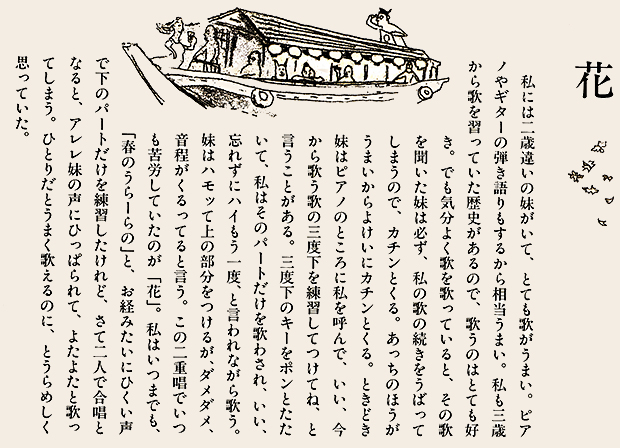 花
私には二歳違いの妹がいて、とても歌がうまい。ピア
ノやギターの弾き語りもするから相当うまい。私も三歳
から歌を習っていた歴史があるので、歌うのはとても好
き。でも気分よく歌を歌っていると、その歌
を聞いた妹は必ず、私の歌の続きをうばって
しまうので、カチンとくる。あっちのほうが
うまいからよけいにカチンとくる。ときどき
妹はピアノのところに私を呼んで、いい、今
から歌う歌の三度下を練習してつけてね、と
言うことがある。三度下のキーをポンとたた
いて、私はそのパートだけを歌わされ、いい、
忘れずにハイもう一度、と言われながら歌う。
妹はハモッて上の部分をつけるが、ダメダメ、
音程がくるってると言う。この二重唱でいつ
も苦労していたのが「花」。私はいつまでも、
「春のうらーらの」と、お経みたいにひくい声
で下のパートだけを練習したけれど、さて二人で合唱と
なると、アレレ妹の声にひっぱられて、よたよたと歌っ
てしまう。ひとりだとうまく歌えるのに、とうらめしく
思っていた。